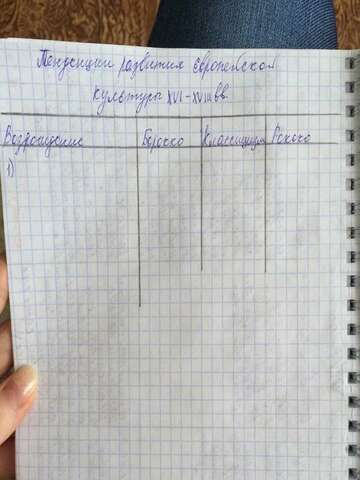 Тенденции развития Европейской
культуры XVI-XVIII вв.
Возрождение Барокко Классицизм Рококо
1)